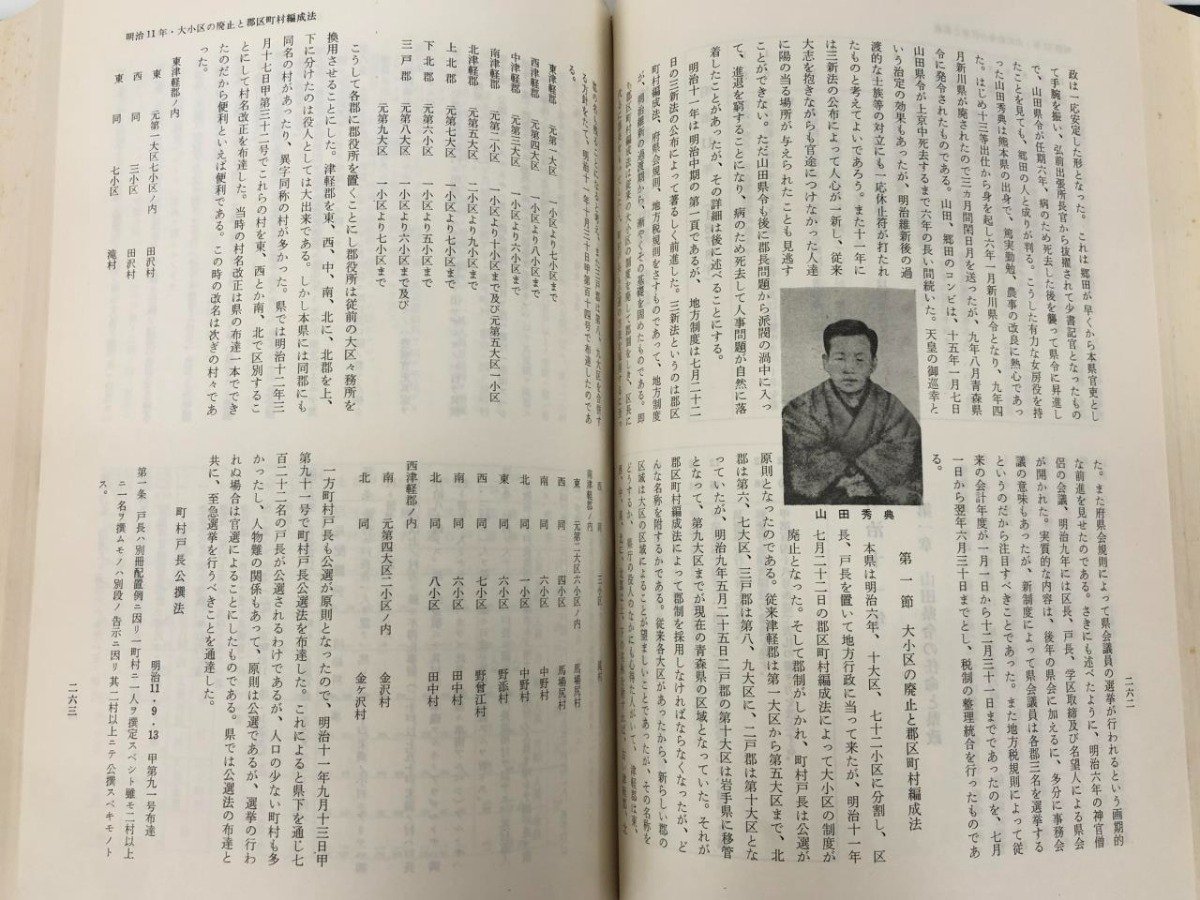 政は一応安定した形となった。これは郷田が早くから本県官吏とし
て手腕を振い、弘前出張所長官から抜擢されて少書記官となったもの
で、山田県令が任期六年、病のため死去した後を襲って県令に昇進し
たことを見ても、郷田の人と成りが判る。こうした有力な女房役を持
った山田秀典は熊本県の出身で、篤実勤勉、農事の改良に熱心であっ
た。はじめ十三等出仕から身を起し六年一月新川県令となり、九年四
月新川県が廃されたので三ヵ月間閑日月を送ったが、九年八月青森県
令に発令されたものである。山田、郷田のコンビは、十五年一月七日
山田県令が上京中死去するまで六年の長い間続いた。天皇の御巡幸と
いう治定の効果もあったが、明治維新後の過
渡的な士族等の対立にも一応休止符が打たれ
たものと考えてよいであろう。また十一年に
は三新法の公布によって人心が一新し、従来
大志を抱きながらも官途につけなかった人達
に陽の当る場所が与えられたことも見逃す
ことができない。ただ山田県令も後に郡長問題から派閥の渦中に入っ
て、進退を窮することになり、病のため死去して人事問題が自然に落
着したことがあったが、その詳細は後に述べることにする。
明治十一年は明治中期の第一頁であるが、地方制度は七月二十二
日の三新法の公布によって著るしく前進した。三新法というのは郡区
町村編成法、府県会規則、地方税規則をさすものであって、地方制度
が、明治維新の過渡期から、漸やくその基礎を固めたものである。即
山田秀典
た。また府県会規則によって県会議員の選挙が行われるという画期的
な前進を見せたのである。さきにも述べたように、明治六年の神官僧
侶の会議、明治九年には区長、戸長、学区取締及び名望人による県会
が開かれた。実質的な内容は、後年の県会に加えるに、多分に事務会
議の意味もあったが、新制度によって県会議員は各郡三名を選挙する
というのだから注目すべきことであった。また地方税規則によって従
来の会計年度が一月一日から十二月三十一日までであったのを、七月
一日から翌年六月三十日までとし、税制の整理統合を行ったものであ
る。
第一節 大小区の廃止と郡区町村編成法
本県は明治六年、十大区、七十二小区に分割し、区
長、戸長を置いて地方行政に当って来たが、明治十一年
七月二十二日の郡区町村編成法によって大小区の制度が
廃止となった。そして郡制がしかれ、町村戸長は公選が
原則となったのである。従来津軽郡は第一大区から第五大区まで、北
郡は第六、七大区、三戸郡は第八、九大区に、二戸郡は第十大区とな
っていたが、明治九年五月二十五日二戸郡の第十大区は岩手県に移管
となって、第九大区までが現在の青森県の区域となっていた。それが
郡区町村編成法によって郡制を採用しなければならなくなったが、ど
んな名称を附するかである。従来各大区があったから、新らしい郡の
区域は大区の区域によることが望ましいことであったが、その名称を
二六二
明治11年・大小区の廃止と郡区町村編成法
る。
東津軽郡 元第一大区 一小区より七小区まで
西津軽郡 元第四大区 一小区より八小区まで
中津軽郡 元第三大区 一小区より十小区まで
南津軽郡 元第二小区 一小区より十小区まで及び元第五大区一小区
北津軽郡 元第五大区 二小区より九小区まで
上北郡 元第七大区 一小区より八小区まで
下北郡 元第六小区 一小区より五小区まで
三戸郡 元第八大区 一小区より六小区まで及び
元第九大区 一小区より七小区まで
こうして各郡に郡役所を置くことにし郡役所は従前の大区々務所を
換用させることにした。津軽郡を東、西、中、南、北に、北郡を上、
下に分けたのは役人としては大出来である。しかし本県には同郡にも
同名の村があったり、異字同称の村が多かった。県では明治十二年三
月十七日甲第三十二号でこれらの村を東、西とか南、北で区別するこ
とにして村名改正を布達した。当時の村名改正は県の布達一本ででき
たのだから便利といえば便利である。この時の改名は次ぎの村々であ
った。
東津軽郡ノ内
東 元第一大区七小区ノ内 田沢村
西 同 三小区 田沢村
東 同 七小区 滝村
南津軽郡ノ内
東 元第二大区六小区ノ内 馬場尻村
西 同 四小区 馬場尻村
南 同 六小区 中野村
北 同 十小区 中野村
東 同 一小区 野添村
西 同 七小区 野曾江村
南 同 六小区 田中村
北 同 八小区 田中村
西津軽郡ノ内
南 元第四大区二小区ノ内 金沢村
北 同 金ヶ沢村
一方町村戸長も公選が原則となったので、明治十一年九月十三日甲
第九十一号で町村戸長公選法を布達した。これによると県下を通じ七
百二十二名の戸長が公選されるわけであるが、人口の少ない町村も多
かったし、人物難の関係もあって、原則は公選であるが、選挙の行わ
れぬ場合は官選によることにしたものである。県では公選法の布達と
共に、至急選挙を行うべきことを通達した。
町村戸長公撰法
明治11・9・13 甲第九一号布達
第一条 戸長ハ別冊配置例ニ因リ一町村ニ一人ヲ撰定スベシト雖モ二村以上
ニ一名ヲ撰ムモノハ別段ノ告示ニ因リ其二村以上ニテ公撰スベキモノト
ス。
二六三